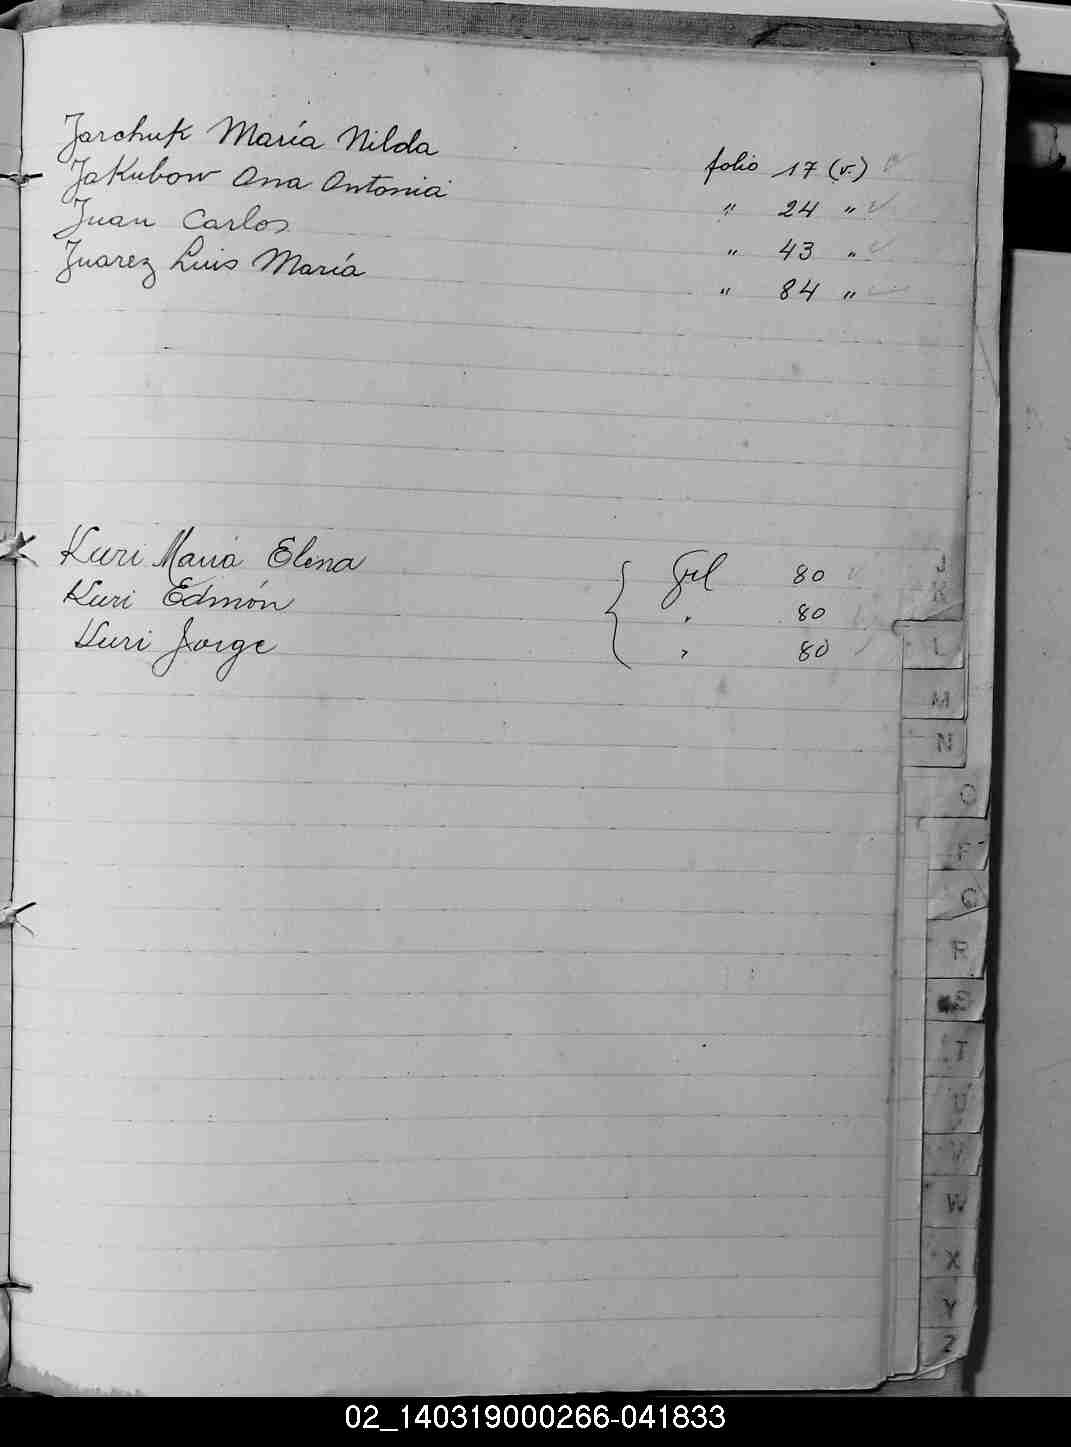 Jarchuk María Nilda folio 17 (v.)
Jakubow Ana Antonia " 24 "
Juan Carlos " 43 "
Juarez Luis María " 84 "
Kuri María Elena 80
Kuri Edmón " 80
Kuri Jorge " 80
J
K
L
M
N
O
P
Q
R
S
T
U
V
W
X
Y
Z
02_140319000266-041833